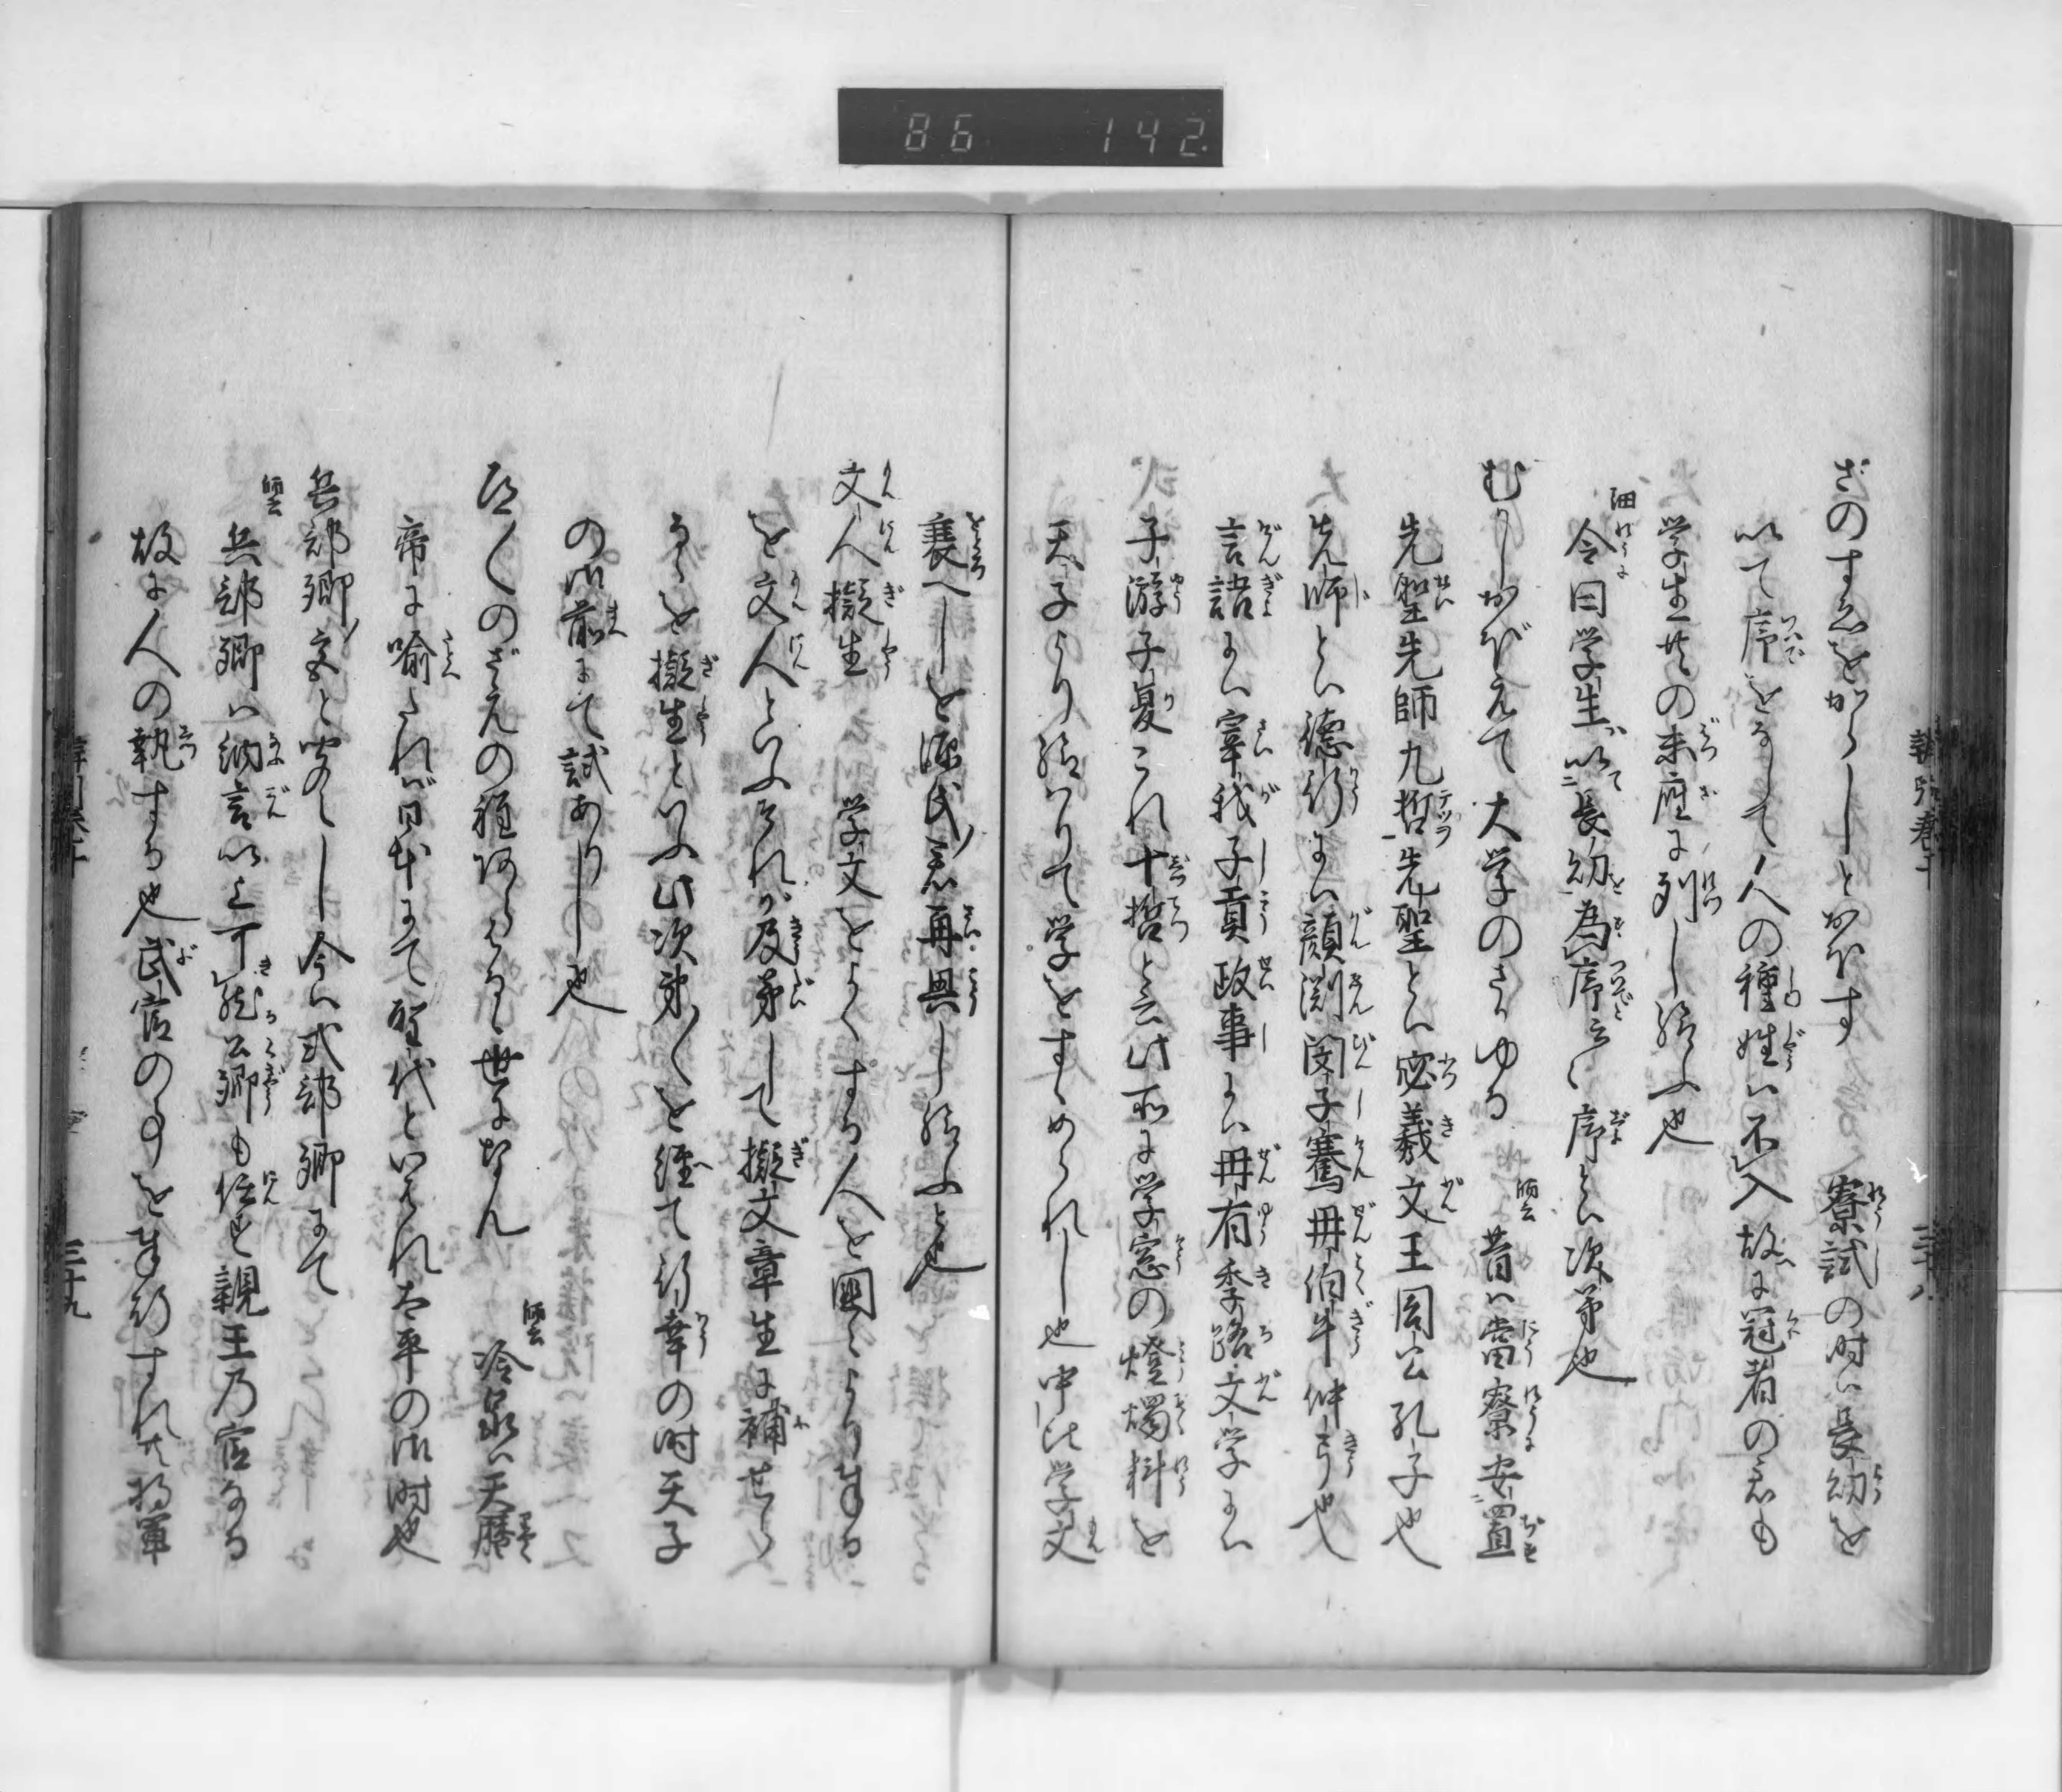 86 142
ざのすゑをからしとおぼす 寮試の時は長幼を
以て序をなして人の種姓は不入故に冠者の君も
学生共の末座に列し給ふ也
細 令曰学生以長幼為序云々序とは次第也
むかしおぼえて大学のさかゆる 師云 昔は當寮安置
先聖先師九哲先聖とは宓羲文王周公孔子也
先師とは徳行には顔渕閔子騫冉伯牛仲弓也
言語には宰我子貢政事には冉有季路文学には
子游子夏これ十哲と云此所に学窓の燈燭料を
天子より給はりて学をすゝめられし也中比学文
衰へしを源氏ノ君再興し給ふと也
文人擬生 学文をよくする人を國々より奉る
を文人といふそれが及第して擬文章生に補せら
るゝを擬生といふ此次第〱を経て行幸の時天子
の御前にて試ありし也
道〱のざえの程あらはるゝ世になん 師云 冷泉は天暦
帝に喩たれば日本にて聖代といはれ太平の御時也
兵部卿ノ宮と聞えし今は式部卿にて
師云 兵部卿は納言以上可然公卿も任ず親王乃官なる
故に人の執する也武官の事を奉行すれ共将軍
三十八
三十九